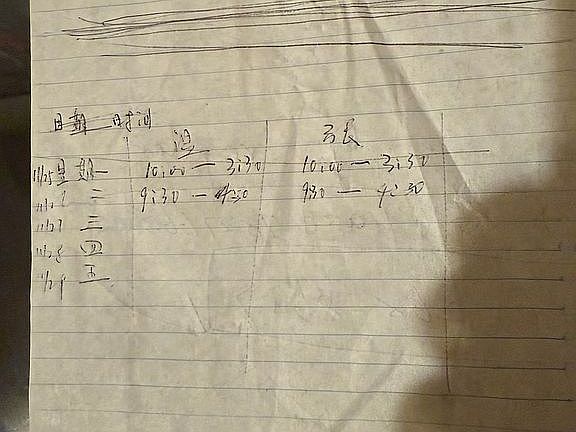 日期 时间
温 张
11/25 星期一 10:00 — 3:30 10:00 — 3:30
11/26 二 9:30 — 4:30 9:30 — 4:30
11/27 三
11/28 四
11/29 五